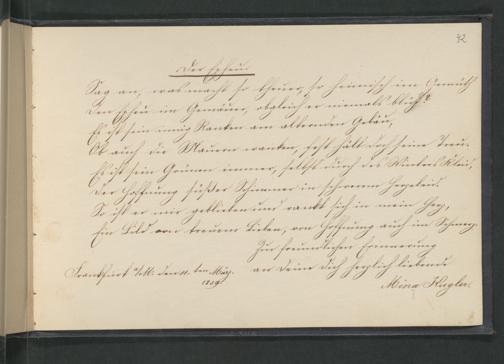 42
Der Epheu.
Sag an, was macht so theuer, so heimisch im Gemüth
Den Epheu im Gemäuer, obgleich er niemals blüht?
Es ist sein innig Ranken am alternden Gebäu,
Ob auch die Mauern wanken, fest hält doch seine Treu.
Es ist sein Grünen immer, selbst durch des Winters Kleid,
Der Hoffnung süßer Schimmer in schwerem Herzeleid.
So ist er mir geblieben und rankt sich in mein Herz,
Ein Bild von treuem Lieben, von Hoffnung auch im Schmerz.
Zur freundlichen Erinnerung
Frankfurt a/M. den 11. ten März. an Deine Dich herzlich liebende
1859
Mina Kugler.